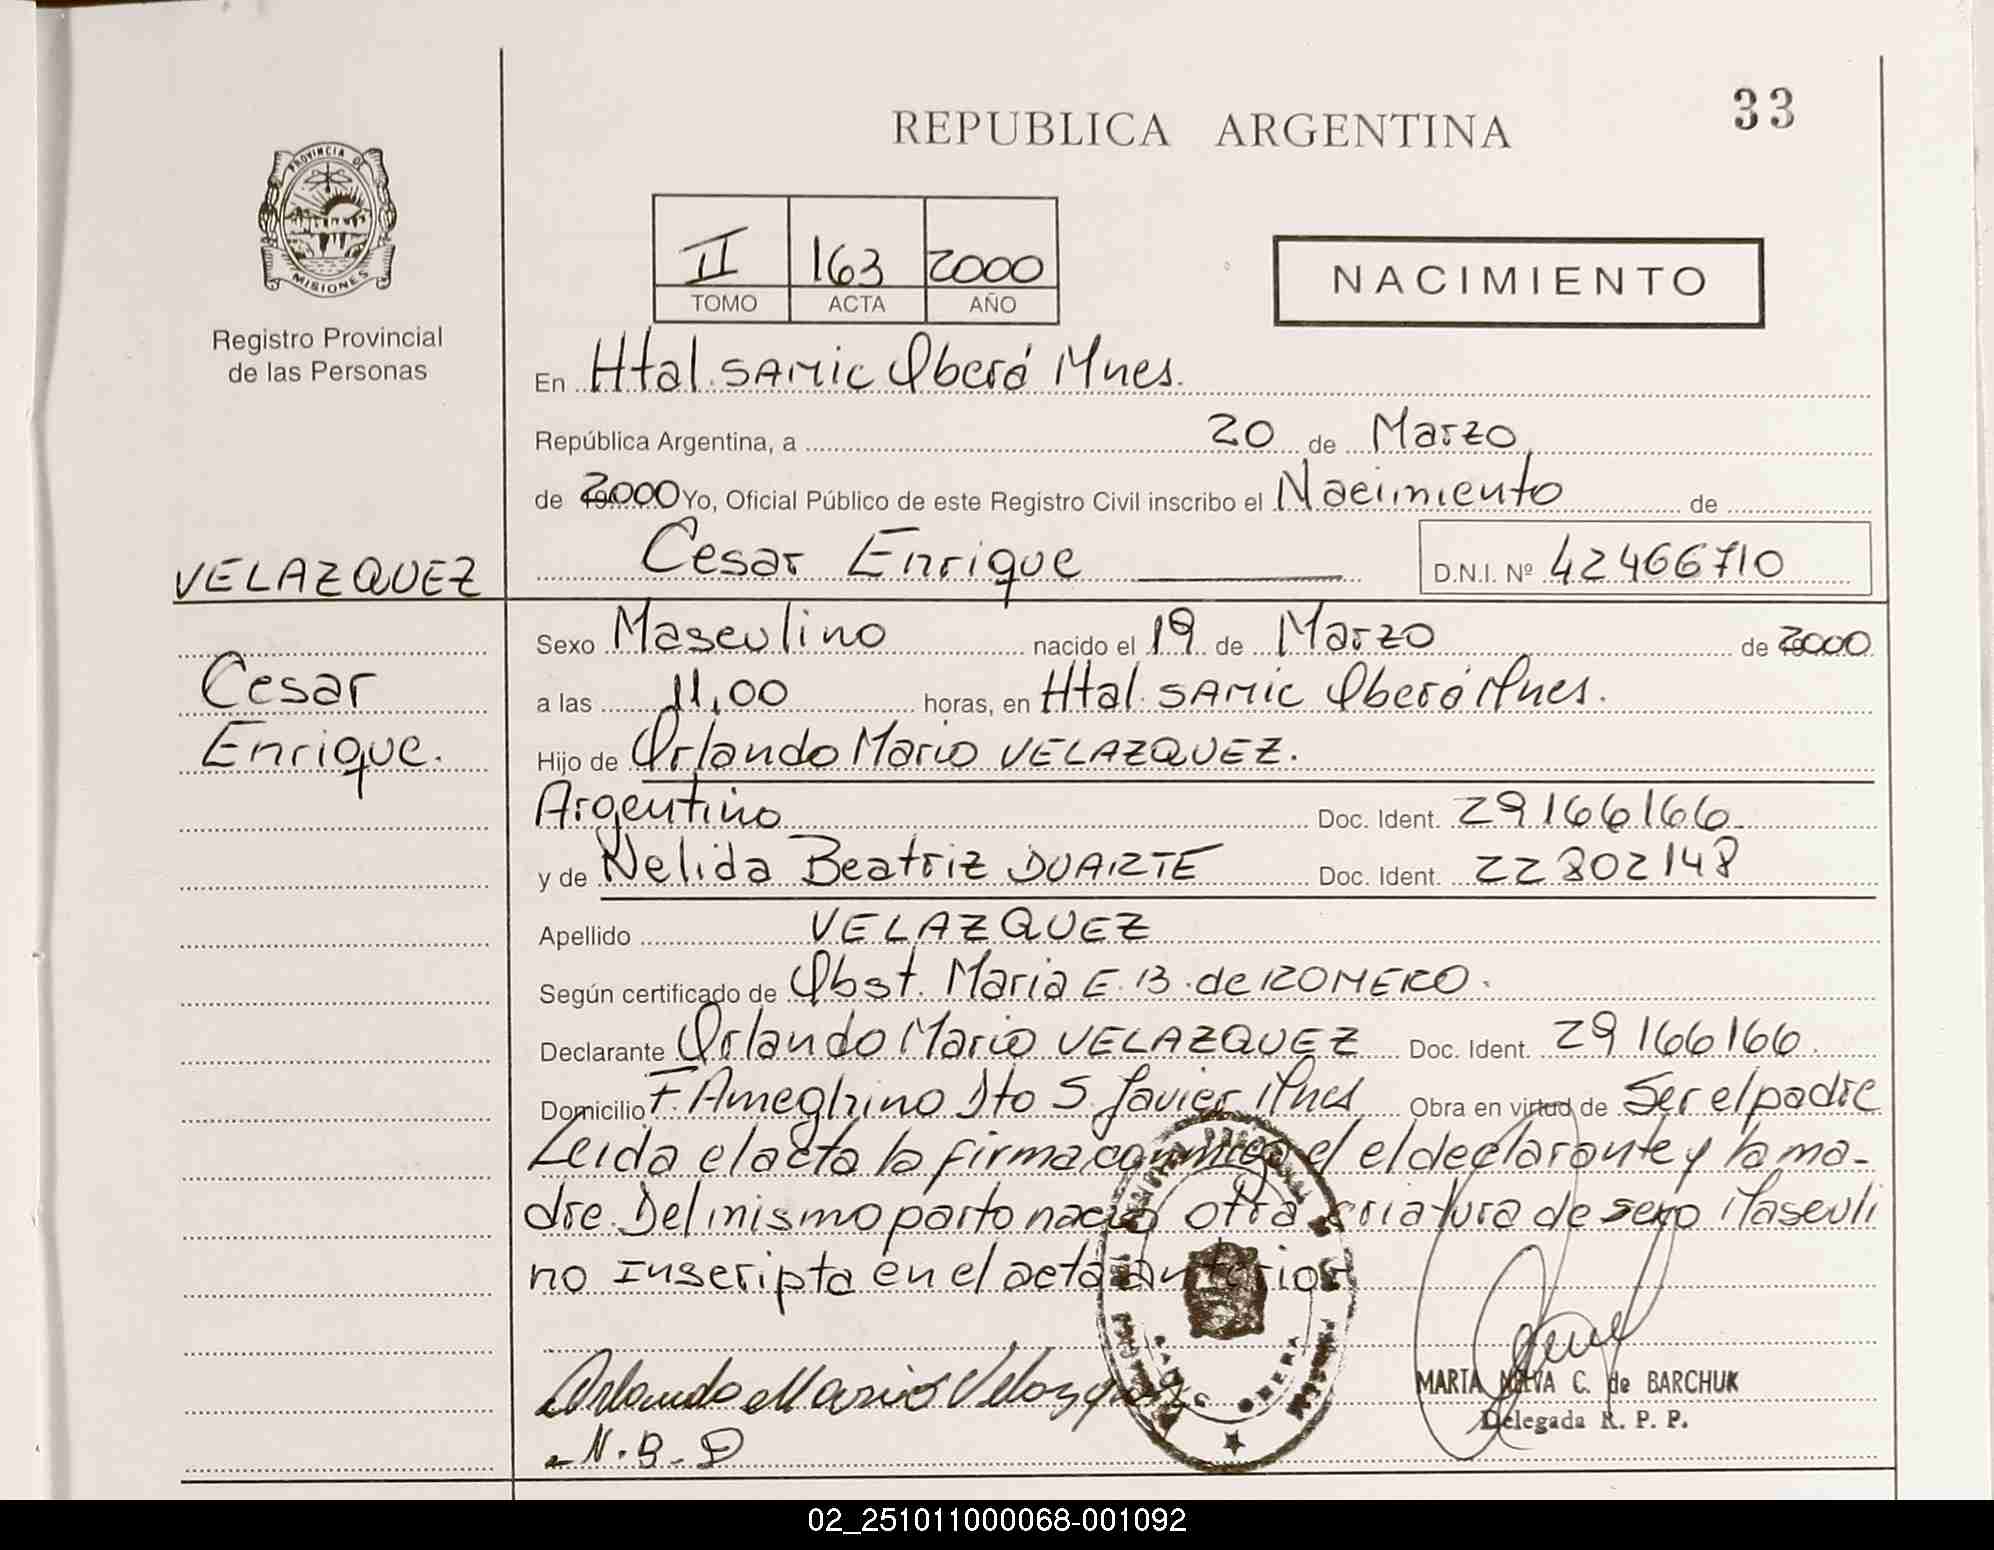 33
REPUBLICA ARGENTINA
PROVINCIA DE
MISIONES
Registro Provincial
de las Personas
II 163 2000
TOMO ACTA AÑO
NACIMIENTO
En Htal. SAMIC Oberá Mnes.
República Argentina, a 20 de Marzo
de 2000 Yo, Oficial Público de este Registro Civil inscribo el Nacimiento de
Cesar Enrique D.N.I. Nº 42466710
VELAZQUEZ
Cesar
Enrique.
Sexo Masculino nacido el 19 de Marzo de 2000
a las 11,00 horas, en Htal. SAMIC Oberá Mnes.
Hijo de Orlando Mario VELAZQUEZ.
Argentino Doc. Ident. 29166166
y de Nelida Beatriz DUARTE Doc. Ident. 22802148
Apellido VELAZQUEZ
Según certificado de Obst. Maria E. B. de ROMERO.
Declarante Orlando Mario VELAZQUEZ Doc. Ident. 29166166
Domicilio F. Ameghino Dto S. Javier Mnes Obra en virtud de Ser el padre
Leida el acta la firma conmigo el el declarante y la ma-
dre. Del mismo parto nacio otra criatura de sexo Masculi
no Inscripta en el acta anterior
Orlando Mario Velazquez
N.B.D
OBERA
MARTA NELVA C. de BARCHUK
Delegada R. P. P.
02_251011000068-001092